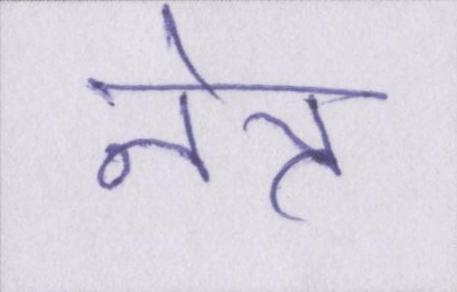 नेत्र